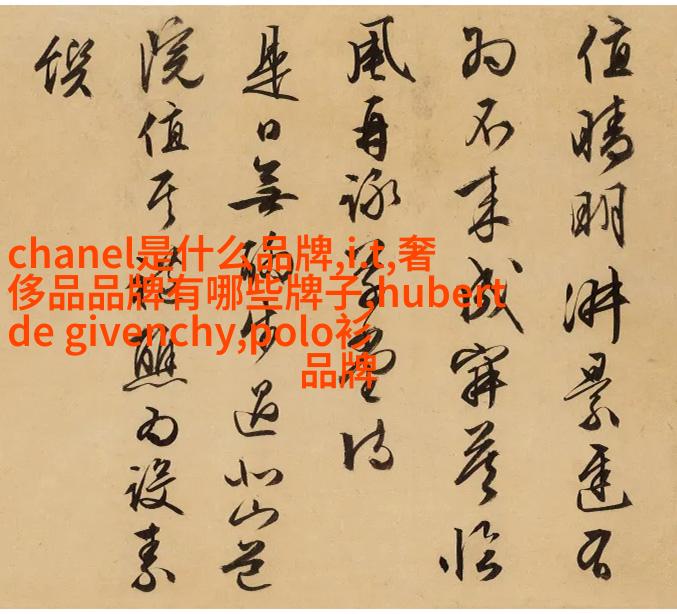 值晴明景有
不来成暮临
風再詠诗
是日無步過北山
院值為設素
饌
chanel是什么品牌,i.t,奢
侈品品牌有哪些牌子,hubert
de givenchy,polo衫
品牌